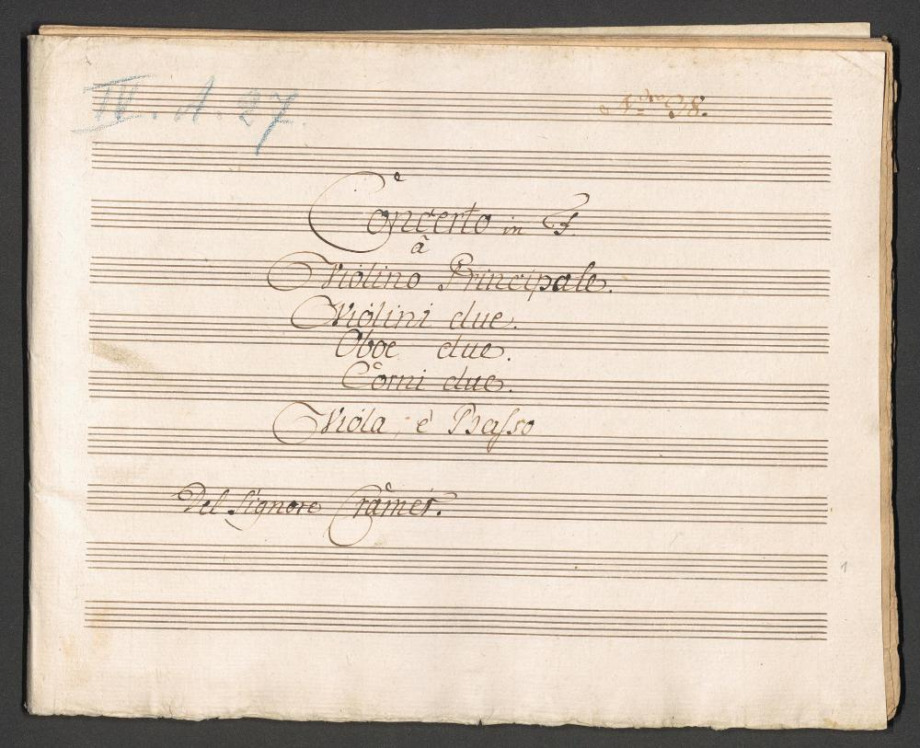 IV. A. 27.
Concerto in F.
à
Violino Principale.
Violini due.
Oboe due.
Corni due.
Viola, è Basso
Del Signore Cramer.
1